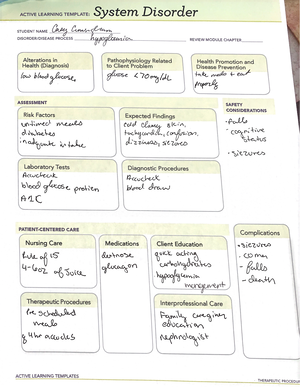 ACTIVE LEARNING TEMPLATE: System Disorder
STUDENT NAME
DISORDER/DISEASE PROCESS hypoglycemia REVIEW MODULE CHAPTER
Alterations in
Health (Diagnosis)
low blood glucose
Pathophysiology Related
to Client Problem
glucose <70mg/dL
Health Promotion and
Disease Prevention
take meds + eat
properly
ASSESSMENT
SAFETY
CONSIDERATIONS
Risk Factors
meals
diabetes
inadequate intake
Expected Findings
cold clammy skin,
tachycardia, confusion,
dizziness,
-falls
-cognitive
status
-siezures
Laboratory Tests
Accucheck
blood glucose
A1C
Diagnostic Procedures
Accucheck
blood draw
PATIENT-CENTERED CARE
Complications
Nursing Care
Rule of 15
4-6oz of Juice
Medications
dextrose
glucagon
Client Education
quick acting
carbohydrates
hypoglycemia
management
-siezures
-coma
-falls
-death
Therapeutic Procedures
Pre scheduled
meals
q 4hr accucks
Interprofessional Care
Family caregiver
education
nephrologist
ACTIVE LEARNING TEMPLATES
THERAPEUTIC PROCEDURE